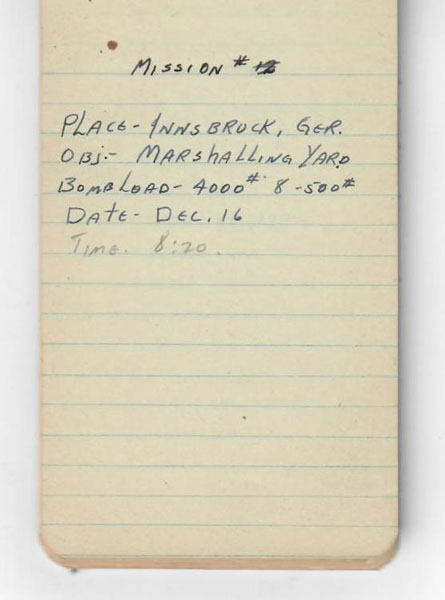 MISSION #
PLACE- INNSBRUCK, GER.
OBJ:- MARSHALLING YARD
BOMB LOAD- 4000# 8-500#
DATE- DEC. 16
TIME. 8:20.